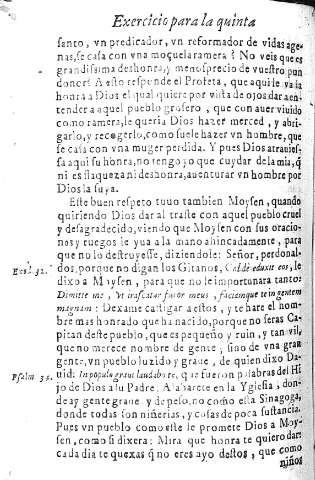 Exercicio para la quinta
santo, vn predicador, vn reformador de vidas age-
nas, se casa con vna moçuela ramera? No veis que es
grandissima deshonra, y menosprecio de vuestro pun
donor? A esto responde el Profeta, que aqui le va la
honra a Dios el qual quiere por vista de ojos dar a en-
tender a aquel pueblo grosero, que con auer viuido
como ramera, le queria Dios hazer merced, y abri-
garlo, y recogerlo, como suele hazer vn hombre, que
se casa con vna muger perdida. Y pues Dios atrauies-
sa aqui su honra, no tengo yo que cuydar de la mia, q̃
ni es flaqueza ni deshonra, auenturar vn hombre por
Dios la suya.
Este buen respeto tuuo tambien Moysen, quando
quiriendo Dios dar al traste con aquel pueblo cruel
y desagradecido, viendo que Moysen con sus oracio-
nes y ruegos le yua a la mano ahincadamente, para
que no lo destruyesse, diziendole: Señor, perdonal-
Exod. 32. dos, porque no digan los Gitanos, eduxit eos, le
dixo a Moysen, para que no le importunara tanto:
Dimitte me, vt irascatur furor meus, faciamque te in gentem
magnam: Dexame castigar a estos, y te hare el hom-
bre mas honrado que ha nacido, porque no seras Ca-
pitan deste pueblo, que es pequeño y ruin, y tan vil,
que no merece nombre de gente; sino de vna gran
gente, vn pueblo luzido y graue, de quien dixo Da-
Psalm 34. uid: In populo graui laudabo te, que fueron palabras del Hi
jo de Dios a su Padre. Alabarete en la Yglesia, don-
de ay gente graue y de peso, no como esta Sinagoga,
donde todas son niñerias, y cosas de poca sustancia.
Pues vn pueblo como este le promete Dios a Moy-
sen, como si dixera: Mira que honra te quiero dar:
cada dia te quexas q̃ no eres ayo destos, que como
niños